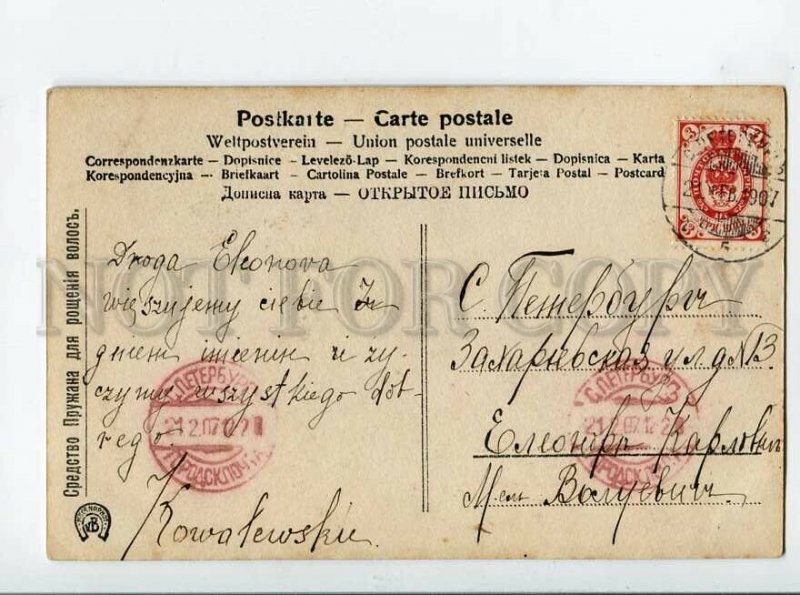 Postkarte — Carte postale
Weltpostverein — Union postale universelle
Correspondenzkarte – Dopisnice – Levelező-Lap – Korespondencni listek – Dopisnica – Karta
Korespondencyjna – Briefkaart – Cartolina Postale – Brefkort – Tarjeta Postal – Postcard
Дописна карта — ОТКРЫТОЕ ПИСЬМО
Средство Пружана для рощенія волосъ.
Droga
wieszujemy ciebie z
dniem imienin i ży-
czymy wszystkiego dob-
rego.
Kowalewski
С. Петербургъ
Захарьевская ул. д № 13
Карловнѣ
NOT FOR COPY
3 3
3 3
1907
С.ПЕТЕРБУРГ
21.2.07
ГОРОДСК.ПОЧТА
С.ПЕТЕРБУРГ
21.2.07
ГОРОДСК.